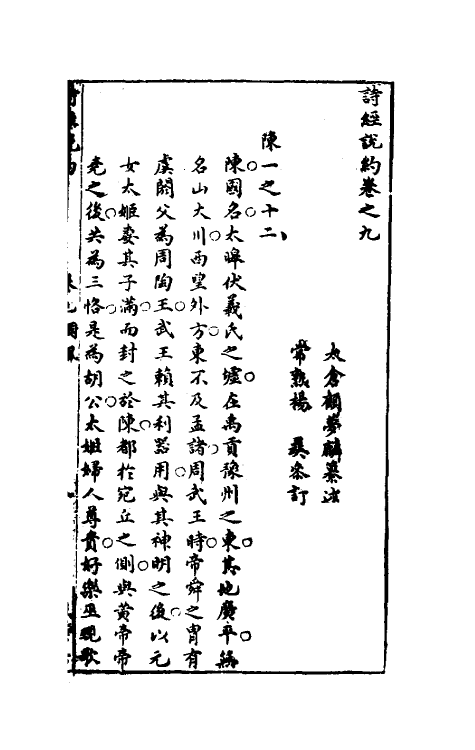 詩經說約卷之九
太倉顧夢麟纂述
常熟楊　彝參訂
陳一之十二
陳國名太皞伏羲氏之墟在禹貢豫州之東其地廣平無
名山大川西望外方東不及孟諸周武王時帝舜之胄有
虞閼父為周陶王武王賴其利器用與其神明之後以元
女太姬妻其子滿而封之於陳都於宛丘之側與黃帝帝
堯之後共為三恪是為胡公太姬婦人尊貴好樂巫覡歌